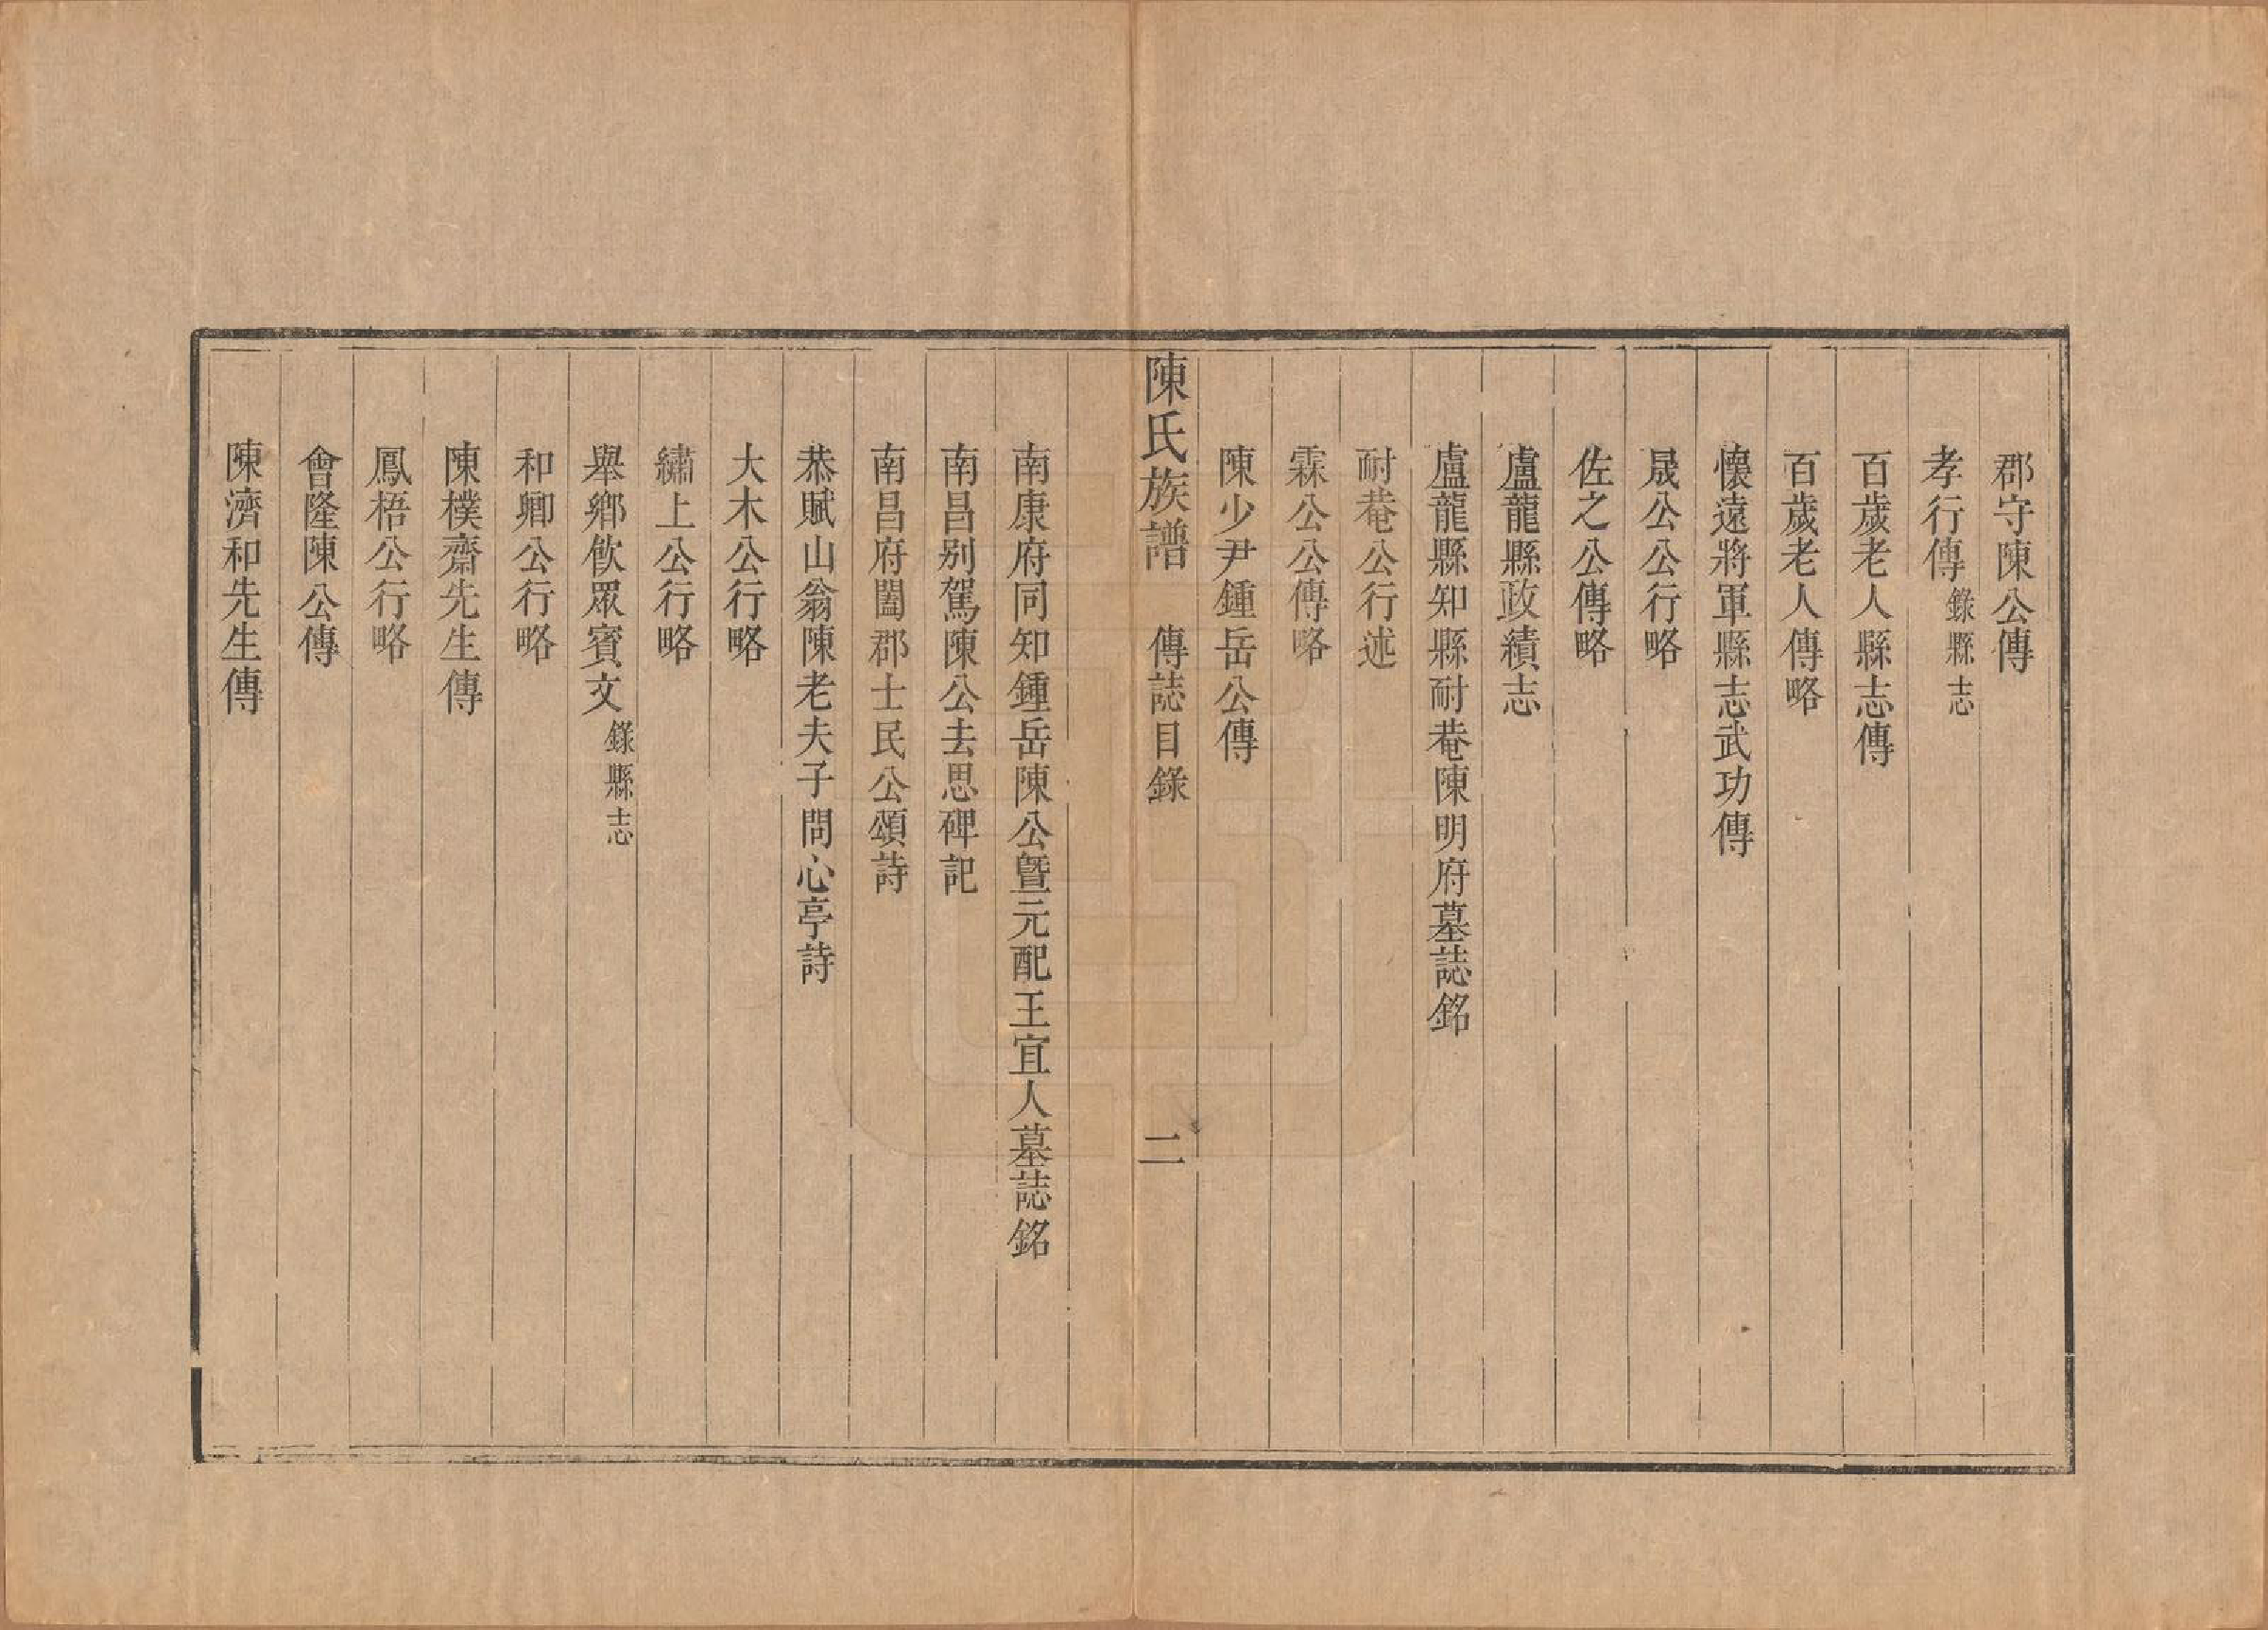 郡守陳公傳
孝行傳錄縣志
百歲老人縣志傳
百歲老人傳略
懷遠將軍縣志武功傳
晟公公行略
佐之公傳略
盧龍縣政績志
盧龍縣知縣耐菴陳明府墓誌銘
耐菴公行述
霖公公傳略
陳少尹鍾岳公傳
陳氏族譜 傳誌目錄 二
南康府同知鍾岳陳公暨元配王宜人墓誌銘
南昌別駕陳公去思碑記
南昌府闔郡士民公頌詩
恭賦山翁陳老夫子問心亭詩
大木公行略
繡上公行略
舉鄉飲眾賓文錄縣志
和卿公行略
陳樸齋先生傳
鳳梧公行略
會隆陳公傳
陳濟和先生傳